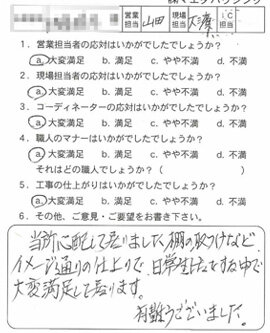 営業担当 山田 現場担当 IC担当
1．営業担当者の応対はいかがでしたでしょうか？
ⓐ大変満足 b. 満足 c. やや不満 d. 不満
2．現場担当者の応対はいかがでしたでしょうか？
ⓐ大変満足 b. 満足 c. やや不満 d. 不満
3．コーディネーターの応対はいかがでしたでしょうか？
ⓐ大変満足 b. 満足 c. やや不満 d. 不満
4．職人のマナーはいかがでしたでしょうか？
ⓐ大変満足 b. 満足 c. やや不満 d. 不満
それはどの職人でしょうか？（ ）
5．工事の仕上がりはいかがでしたでしょうか？
ⓐ大変満足 b. 満足 c. やや不満 d. 不満
6．その他、ご意見・ご要望をお書き下さい。
当初心配して居りました棚の取つけなど、
イメージ通りの仕上りで、日常生活をする中で
大変満足して居ります。
有難うございました。